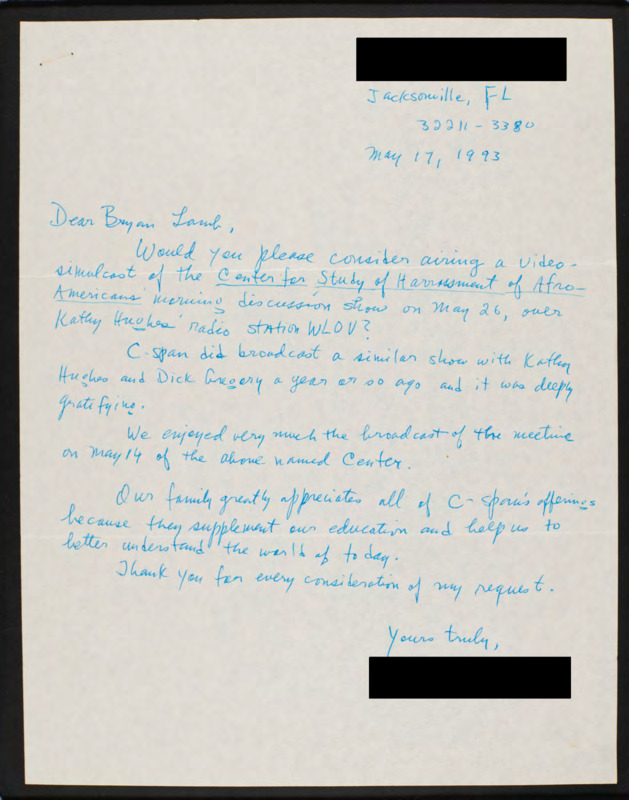 Jacksonville, FL
32211-3380
May 17, 1993
Dear Bryan Lamb,
Would you please consider airing a video-
simulcast of the Center for Study of Harrassment of Afro-
Americans' morning discussion show on May 26, over
Kathy Hughes' radio station WLOV?
C-span did broadcast a similar show with Kathy
Hughes and Dick Gregory a year or so ago and it was deeply
gratifying.
We enjoyed very much the broadcast of the meeting
on May 14 of the above named Center.
Our family greatly appreciates all of C-span's offerings
because they supplement our education and help us to
better understand the world of today.
Thank you for every consideration of my request.
Yours truly,